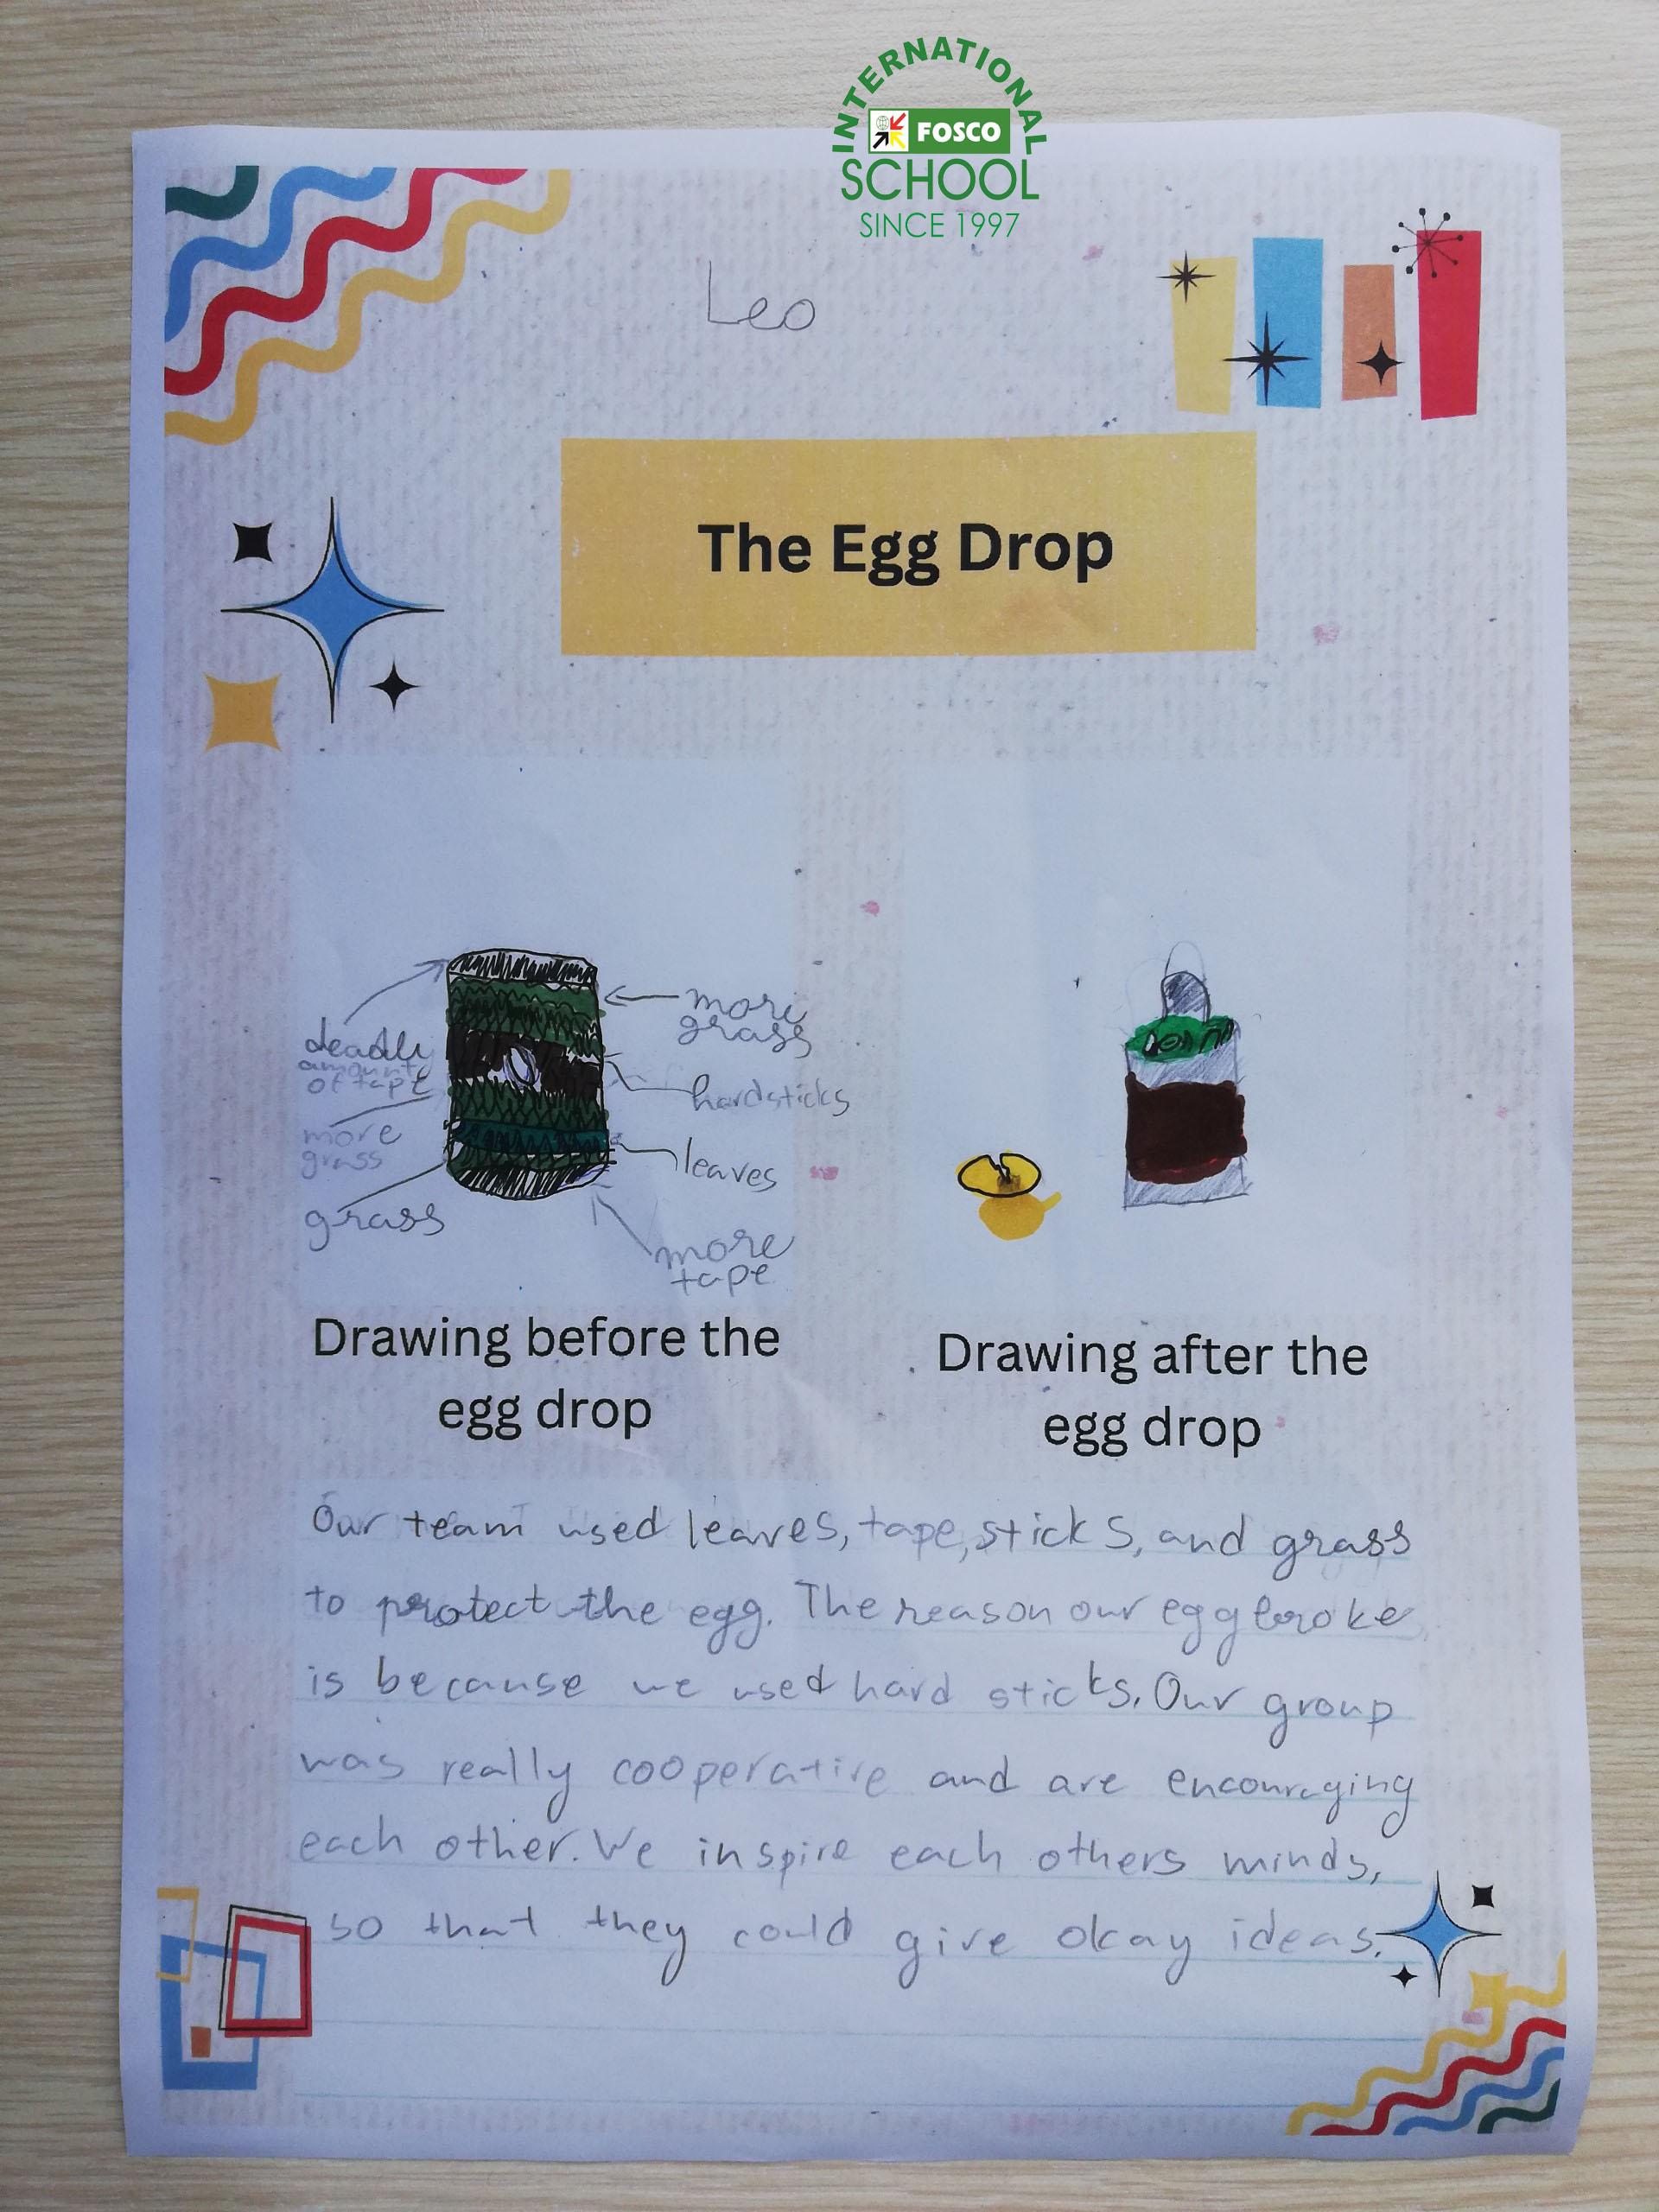 INTERNATIONAL
FOSCO
SCHOOL
SINCE 1997
Leo
The Egg Drop
deadly
amount
of tape
more
grass
grass
more
grass
hardsticks
leaves
more
tape
Drawing before the
egg drop
Drawing after the
egg drop
Our team used leaves, tape, sticks, and grass
to protect the egg. The reason our egg broke
is because we used hard sticks. Our group
was really cooperative and are encouraging
each other. We inspire each others minds,
so that they could give okay ideas.